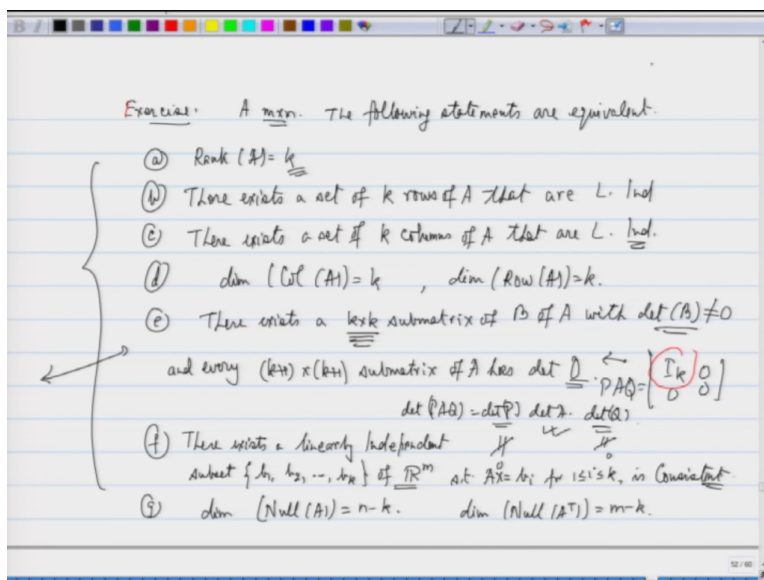 B I
Exercise. A m×n. The following statements are equivalent.
(a) Rank (A) = k
(b) There exists a set of k rows of A that are L. Ind
(c) There exists a set of k columns of A that are L. Ind.
(d) dim (Col (A)) = k , dim (Row (A)) = k.
(e) There exists a k×k submatrix of B of A with det (B) ≠ 0
and every (k+1) × (k+1) submatrix of A has det 0. PAQ = [I_k 0
0 0]
det (PAQ) = det(P) det A. det(Q)
(f) There exists a linearly Independent
subset {b₁, b₂, ..., b_k} of ℝ^m s.t. Ax = b_i for 1≤i≤k, is Consistent.
(g) dim (Null (A)) = n-k. dim (Null (A^T)) = m-k.
52 / 60